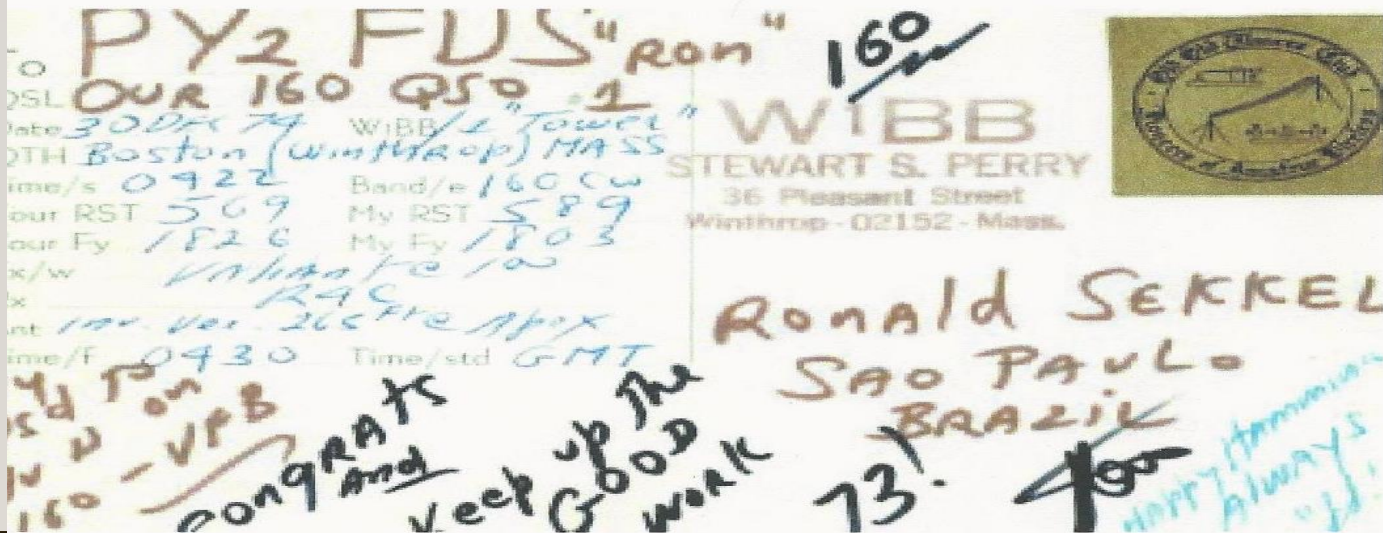 PY2 FUS "RON"
160
OUR 160 QSO 1
QSL
Date 30 Dec 74 W1BB/1 "Tower"
QTH Boston (Winthrop) MASS
Time/s 0422 Band/e 160 CW
Your RST 569 My RST 589
Your Fy 1826 My Fy 1803
x/w Valiante 100
R4C
Ant Inv. Vee. 265 Apex
Time/f 0430 Time/std GMT
W1BB
STEWART S. PERRY
36 Pleasant Street
Winthrop - 02152 - Mass.
Ronald SEKKEL
SAO PAULO
BRAZIL
on
160 - VFB
Congrats
And
Keep up The
GOOD
work
73!
Happy Hamming
Always